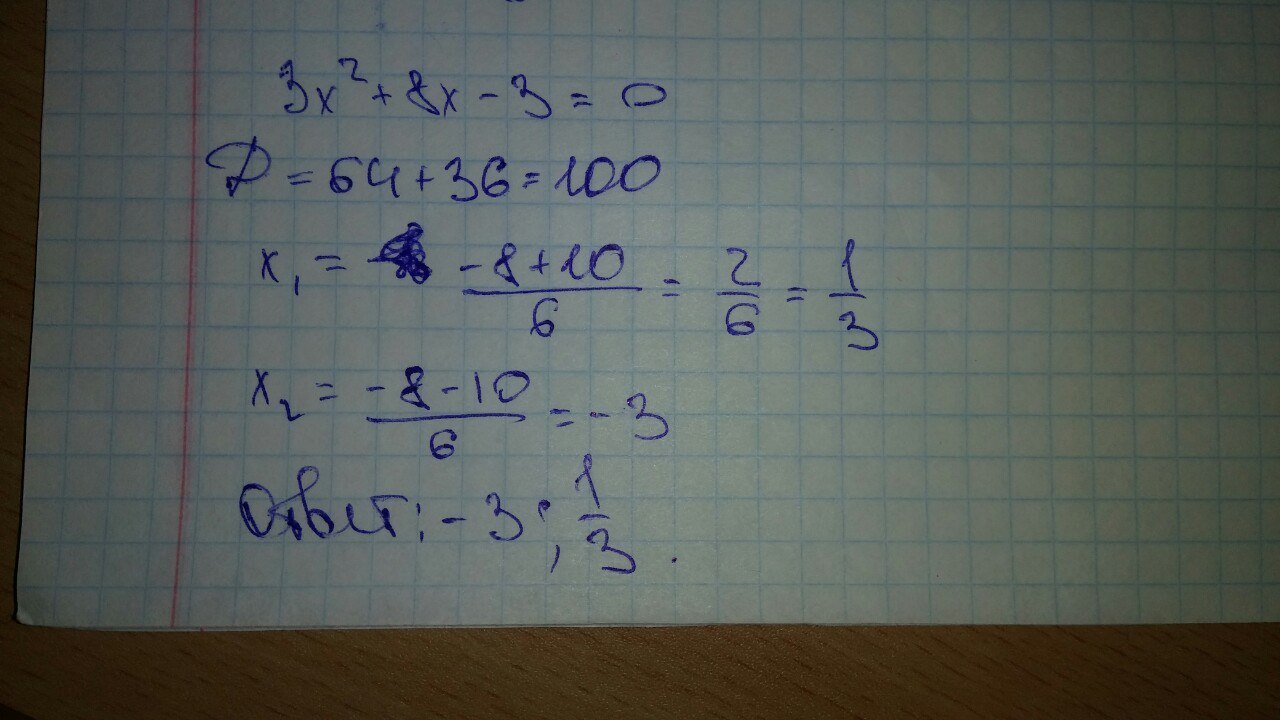 3x² + 8x - 3 = 0
D = 64 + 36 = 100
x₁ = -8+10/6 = 2/6 = 1/3
x₂ = -8-10/6 = -3
Ответ: -3; 1/3.